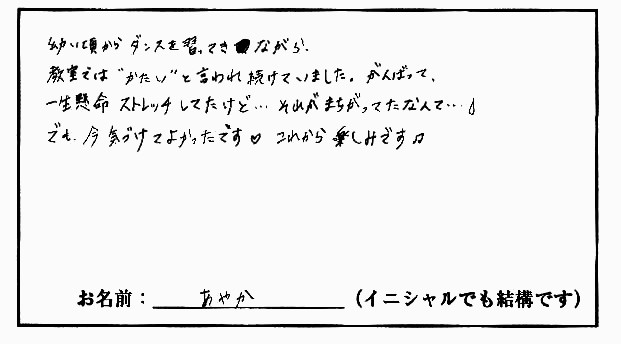 幼い頃からダンスを習ってきながら、
教室では"かたい"と言われ続けていました。がんばって、
一生懸命ストレッチしてたけど…それがまちがってたなんて…♪
でも、今気づけてよかったです♡これから楽しみです♫
お名前：あやか（イニシャルでも結構です）